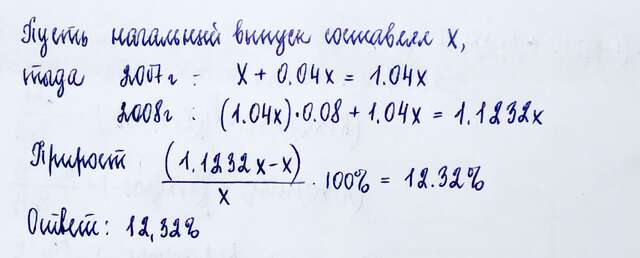 Пусть начальный выпуск составлял x,
тогда 2007г : x + 0.04x = 1.04x
2008г : (1.04x)·0.08 + 1.04x = 1.1232x
Прирост (1.1232x-x)/x · 100% = 12.32%
Ответ: 12,32%